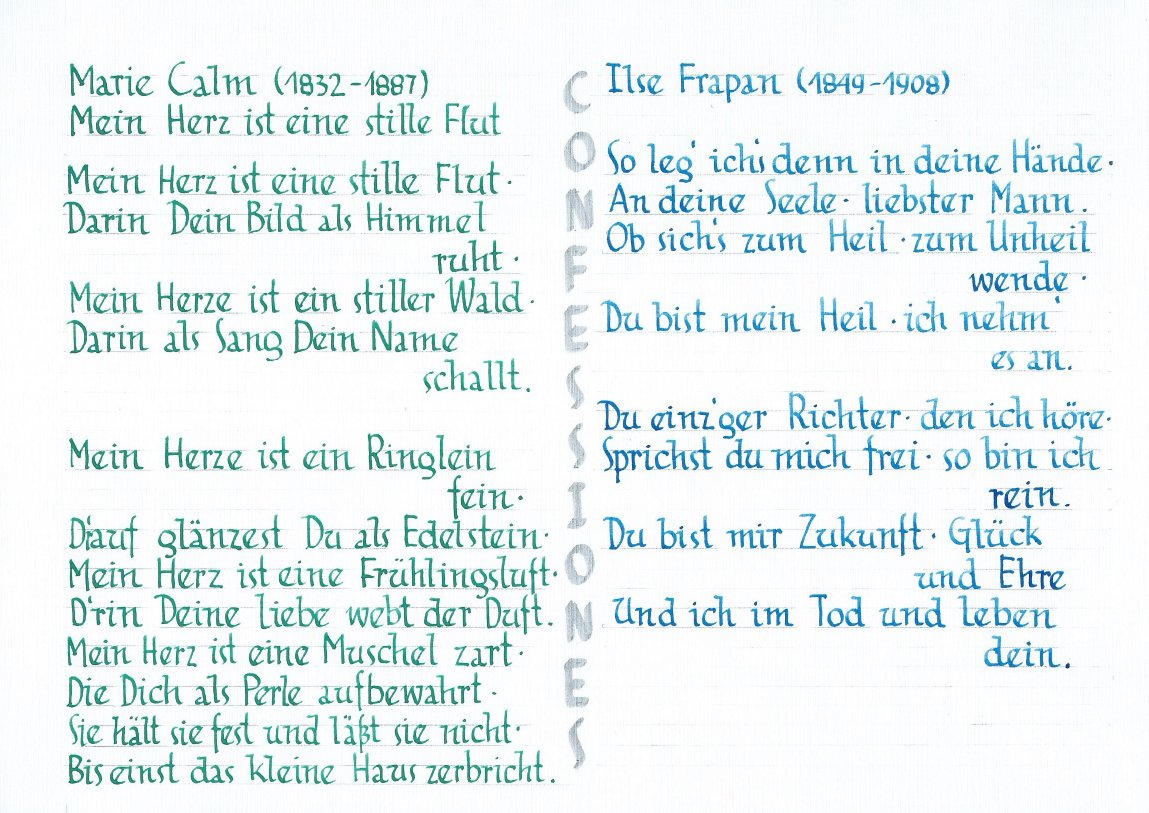 Marie Calm (1832-1887)
Mein Herz ist eine stille Flut
Mein Herz ist eine stille Flut·
Darin Dein Bild als Himmel
ruht·
Mein Herze ist ein stiller Wald·
Darin als Sang Dein Name
schallt.
Mein Herze ist ein Ringlein
fein·
D'rauf glänzest Du als Edelstein·
Mein Herz ist eine Frühlingsluft·
D'rin Deine liebe webt der Duft.
Mein Herz ist eine Muschel zart·
Die Dich als Perle aufbewahrt·
Sie hält sie fest und läßt sie nicht·
Bis einst das kleine Haus zerbricht.
CONFESSIONES
Ilse Frapan (1849-1908)
So leg' ich's denn in deine Hände·
An deine Seele· liebster Mann.
Ob sich's zum Heil·zum Unheil
wende·
Du bist mein Heil·ich nehm'
es an.
Du einz'ger Richter· den ich höre·
Sprichst du mich frei· so bin ich
rein.
Du bist mir Zukunft· Glück
und Ehre
Und ich im Tod und leben
dein.